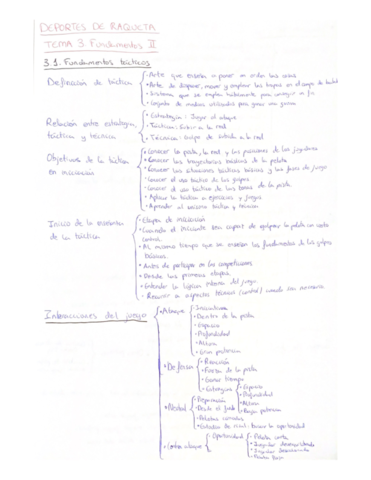 DEPORTES DE RAQUETA
TEMA 3. Fundamentos II
3.1. Fundamentos tácticos
Definición de táctica
• Arte que enseña a poner en orden las cosas
• Arte de disponer, mover y emplear las tropas en el campo de batalla
• Sistema que se emplea habilmente para conseguir un fin
• Conjunto de medios utilizados para ganar una
Relación entre estrategia,
táctica y técnica
• Estrategia: Jugar a la red
• Táctica: Subir a la red
• Técnica: Golpe de a la red
Objetivos de la táctica
en iniciación
• Conocer la pista, la red y las posiciones de los jugadores
• Conocer las trayectorias básicas de la pelota
• Conocer las situaciones tácticas básicas y las fases de juego
• Conocer el uso táctico de los golpes
• Conocer el uso táctico de las zonas de la pista
• Aplicar la táctica a ejercicios y juegos
• Aprender el táctico y técnico
Inicio de la enseñanza
de la táctica
• Etapa de iniciación
• Cuando el iniciante sea capaz de golpear la pelota con cierto
control.
• Al mismo tiempo que se enseñan los fundamentos de los golpes
técnicos
• Antes de participar en las competiciones
• Desde las primeras etapas
• Entender la lógica interna del juego
- Recurrir a aspectos técnicos (control) cuando sea necesario
Interacciones del juego
• Ataque
• Dentro de la pista
• Espacio
• Profundidad
• Altura
• Gran potencia
• Defensa
• Reacción
• Fuera de la pista
• Ganar tiempo
• Estrategia
• Espacio
• Profundidad
• Altura
• Baja potencia
• Neutral
• Preparación
• Desde el fondo
• Pelotas cruzadas
• buscar la oportunidad
• Contra ataque
• Oportunidad
• Pelota corta
• Jugador
• Jugador